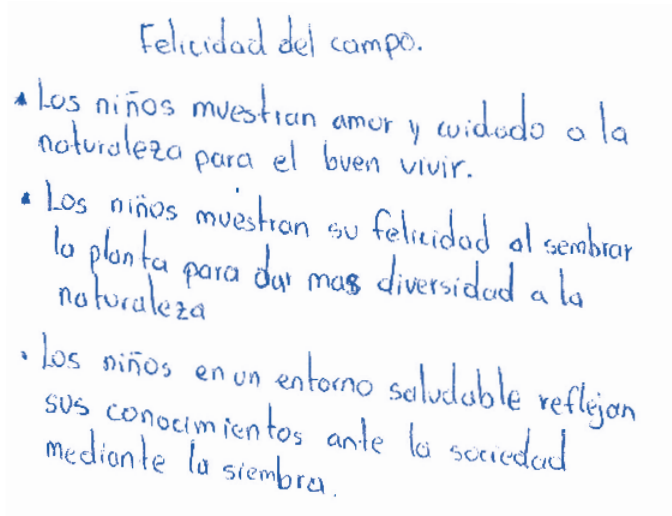 Felicidad del campo.
• Los niños muestran amor y cuidado a la
naturaleza para el buen vivir.
• Los niños muestran su felicidad al sembrar
la planta para dar mas diversidad a la
naturaleza
• Los niños en un entorno saludable reflejan
sus conocimientos ante la sociedad
mediante la siembra.